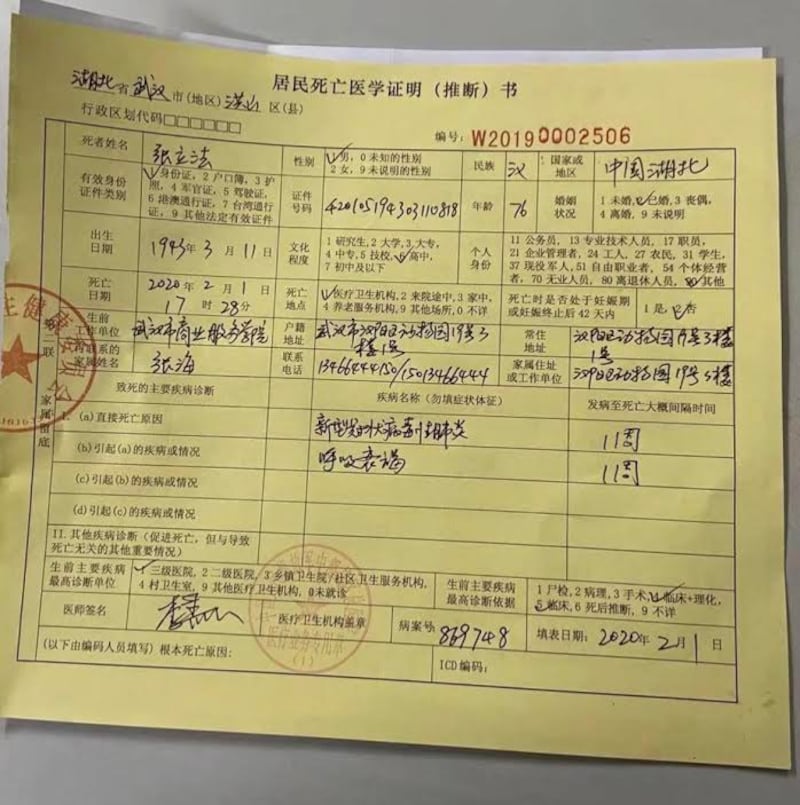 居民死亡医学证明（推断）书
湖北省武汉市(地区)洪山区(县)
行政区划代码□□□□□□
编号: W20190002506
死者姓名 张立法 性别 1男, 0未知的性别 2女, 9未说明的性别 民族 汉 国家或地区 中国湖北
有效身份证件类别 1身份证, 2户口簿, 3护照, 4军官证, 5驾驶证, 6港澳通行证, 7台湾通行证, 9其他法定有效证件 证件号码 420105194303110818 年龄 76 婚姻状况 1未婚, 2已婚, 3丧偶, 4离婚, 9未说明
出生日期 1943年3月11日 文化程度 1研究生, 2大学, 3大专, 4中专, 5技校, 6高中, 7初中及以下 个人身份 11公务员, 13专业技术人员, 17职员, 21企业管理者, 24工人, 27农民, 31学生, 37现役军人, 51自由职业者, 54个体经营者, 70无业人员, 80离退休人员, 90其他
死亡日期 2020年2月1日 17时28分 死亡地点 1医疗卫生机构, 2来院途中, 3家中, 4养老服务机构, 9其他场所, 0不详 死亡时是否处于妊娠期或妊娠终止后42天内 1是, 2否
生前工作单位 武汉市商业服务学院 户籍地址 武汉市汉阳区 园19号3楼1号 常住地址 汉阳区 园19号3楼1号
可联系的家属姓名 张海 联系电话 13466444150/15013466444 家属住址或工作单位 汉阳区 园19号3楼
致死的主要疾病诊断 疾病名称（勿填症状体征） 发病至死亡大概间隔时间
I. (a)直接死亡原因 新型冠状病毒肺炎 1周
(b)引起(a)的疾病或情况 呼吸衰竭 1周
(c)引起(b)的疾病或情况
(d)引起(c)的疾病或情况
II.其他疾病诊断（促进死亡，但与导致死亡无关的其他重要情况）
生前主要疾病最高诊断单位 1三级医院, 2二级医院, 3乡镇卫生院/社区卫生服务机构, 4村卫生室, 9其他医疗卫生机构, 0未就诊 生前主要疾病最高诊断依据 1尸检, 2病理, 3手术, 4临床+理化, 5临床, 6死后推断, 9不详
医师签名 医疗卫生机构盖章 病案号: 869748 填表日期: 2020年2月1日
(以下由编码人员填写) 根本死亡原因: ICD编码:
联
家属留底
医疗业务专用章
(1)